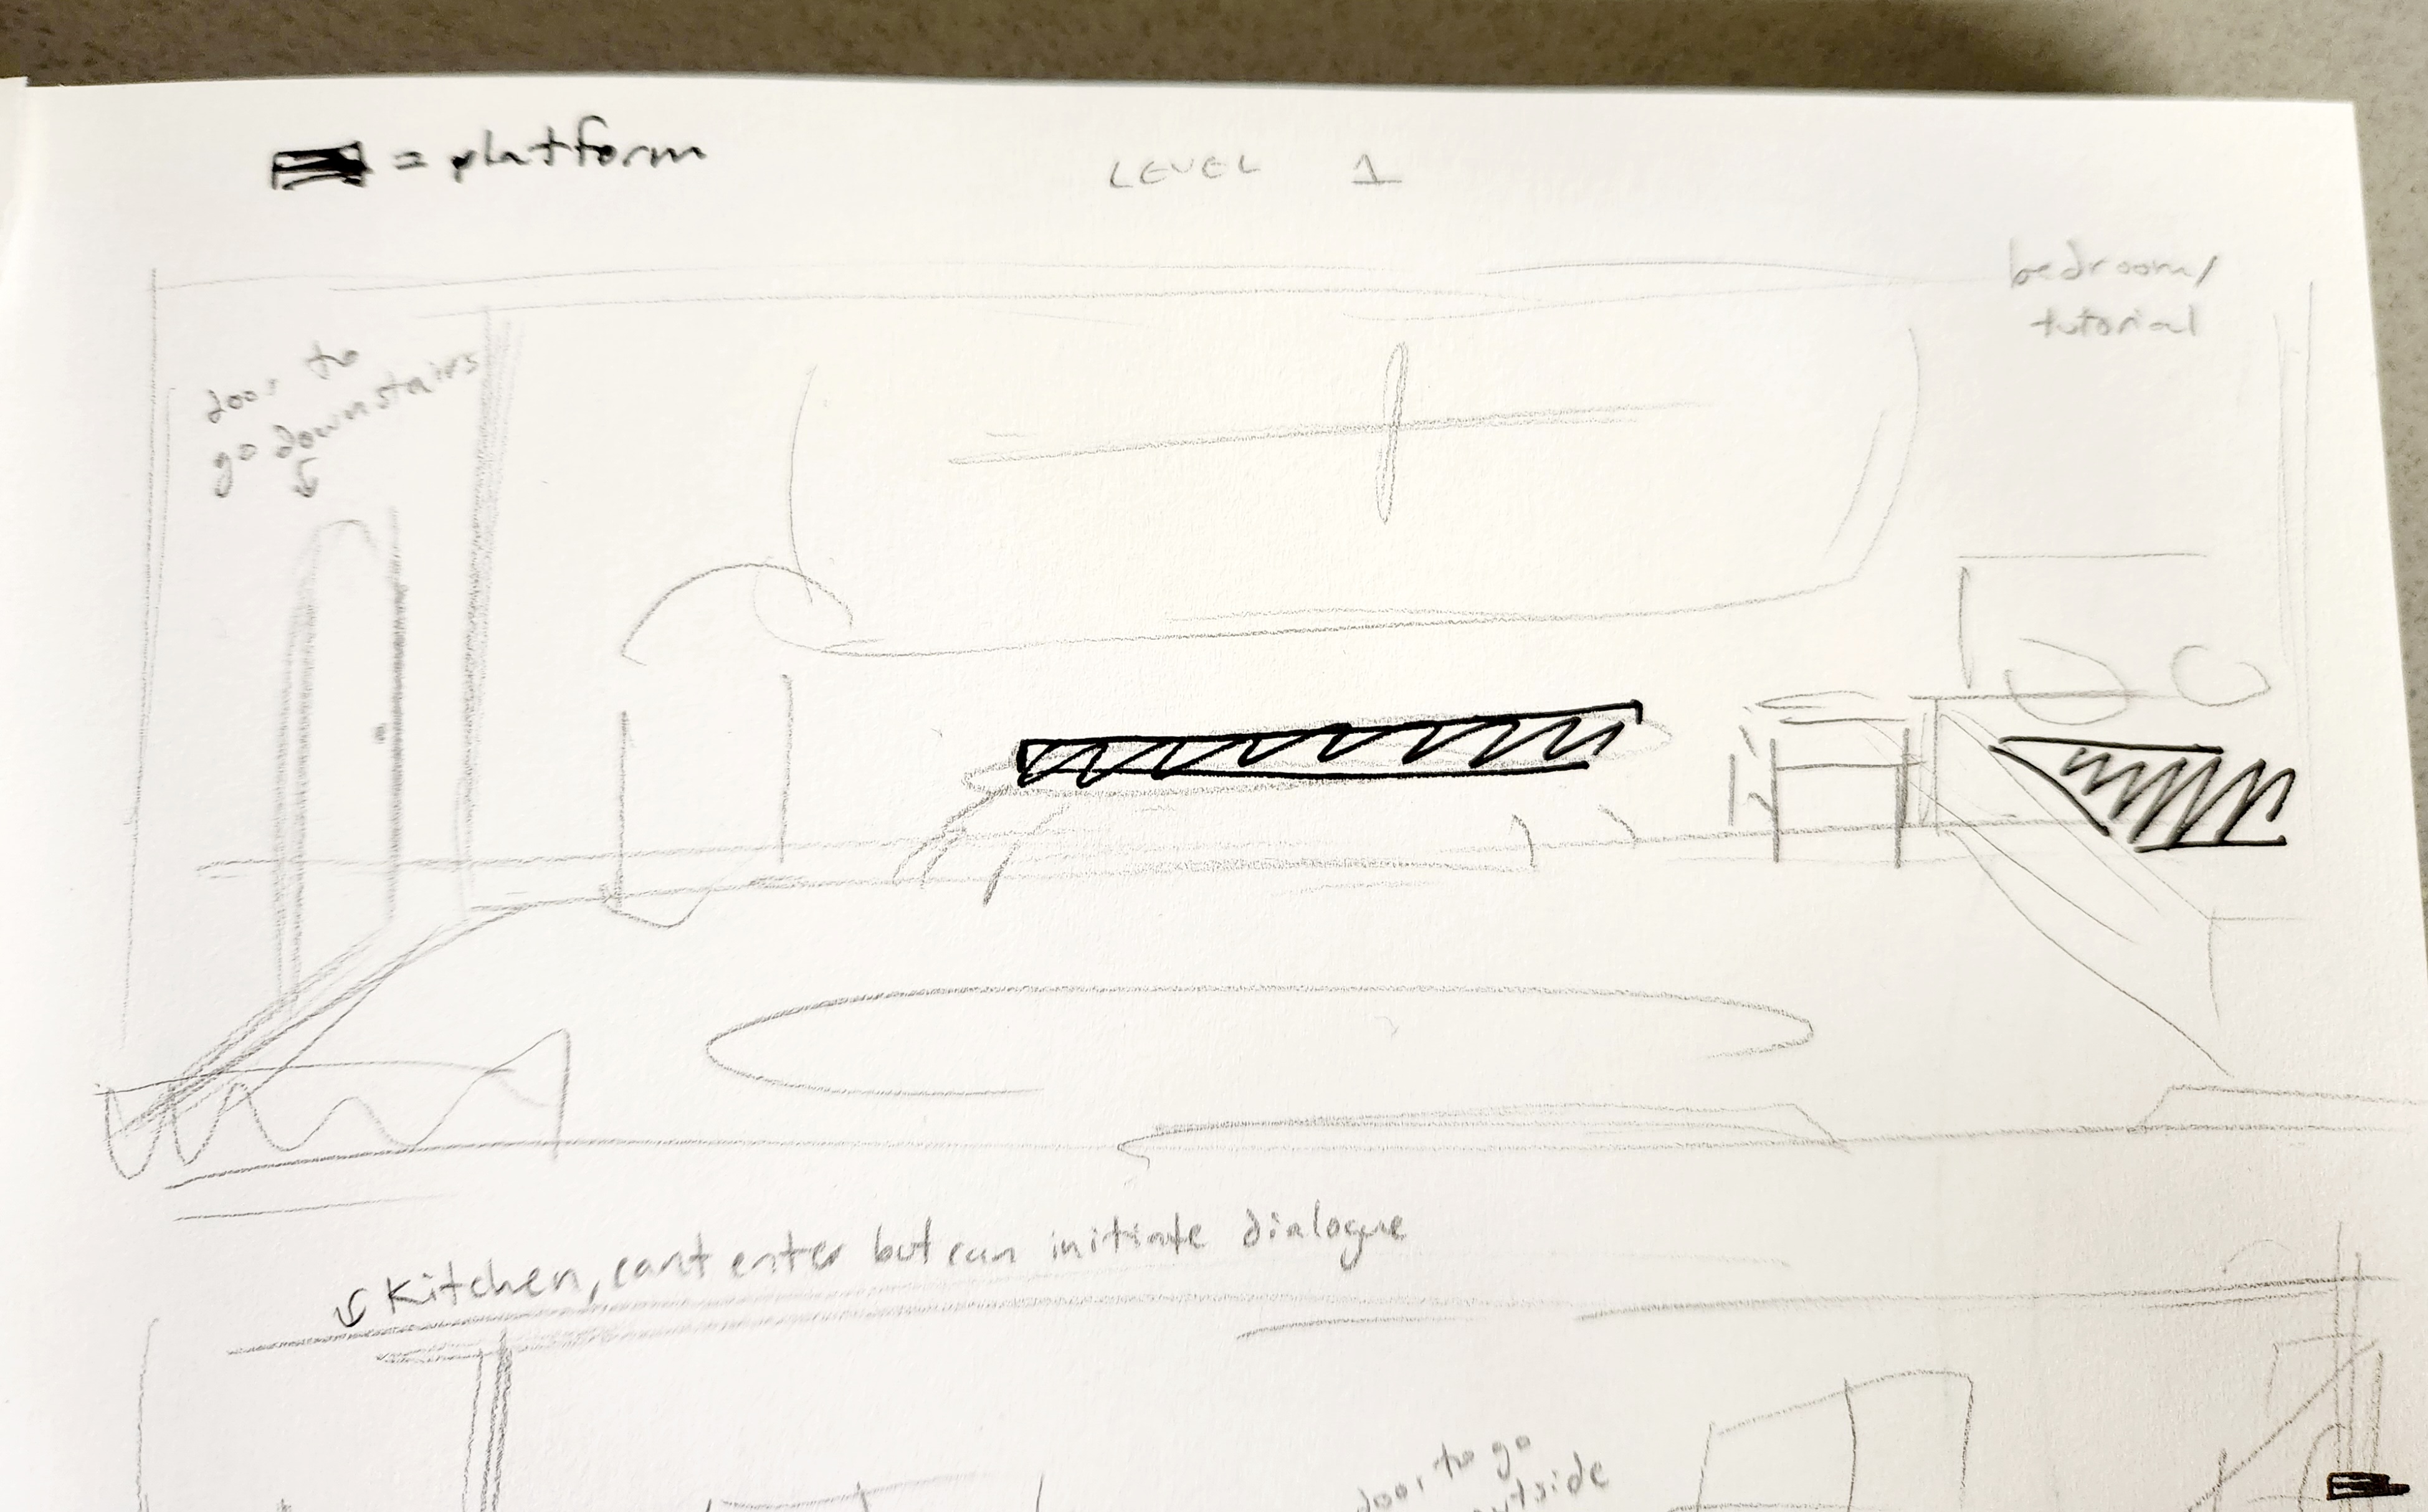 = platform
LEVEL 1
bedroom/
tutorial
door to
go downstairs
Kitchen, cant enter but can initiate dialogue
door to go
outside